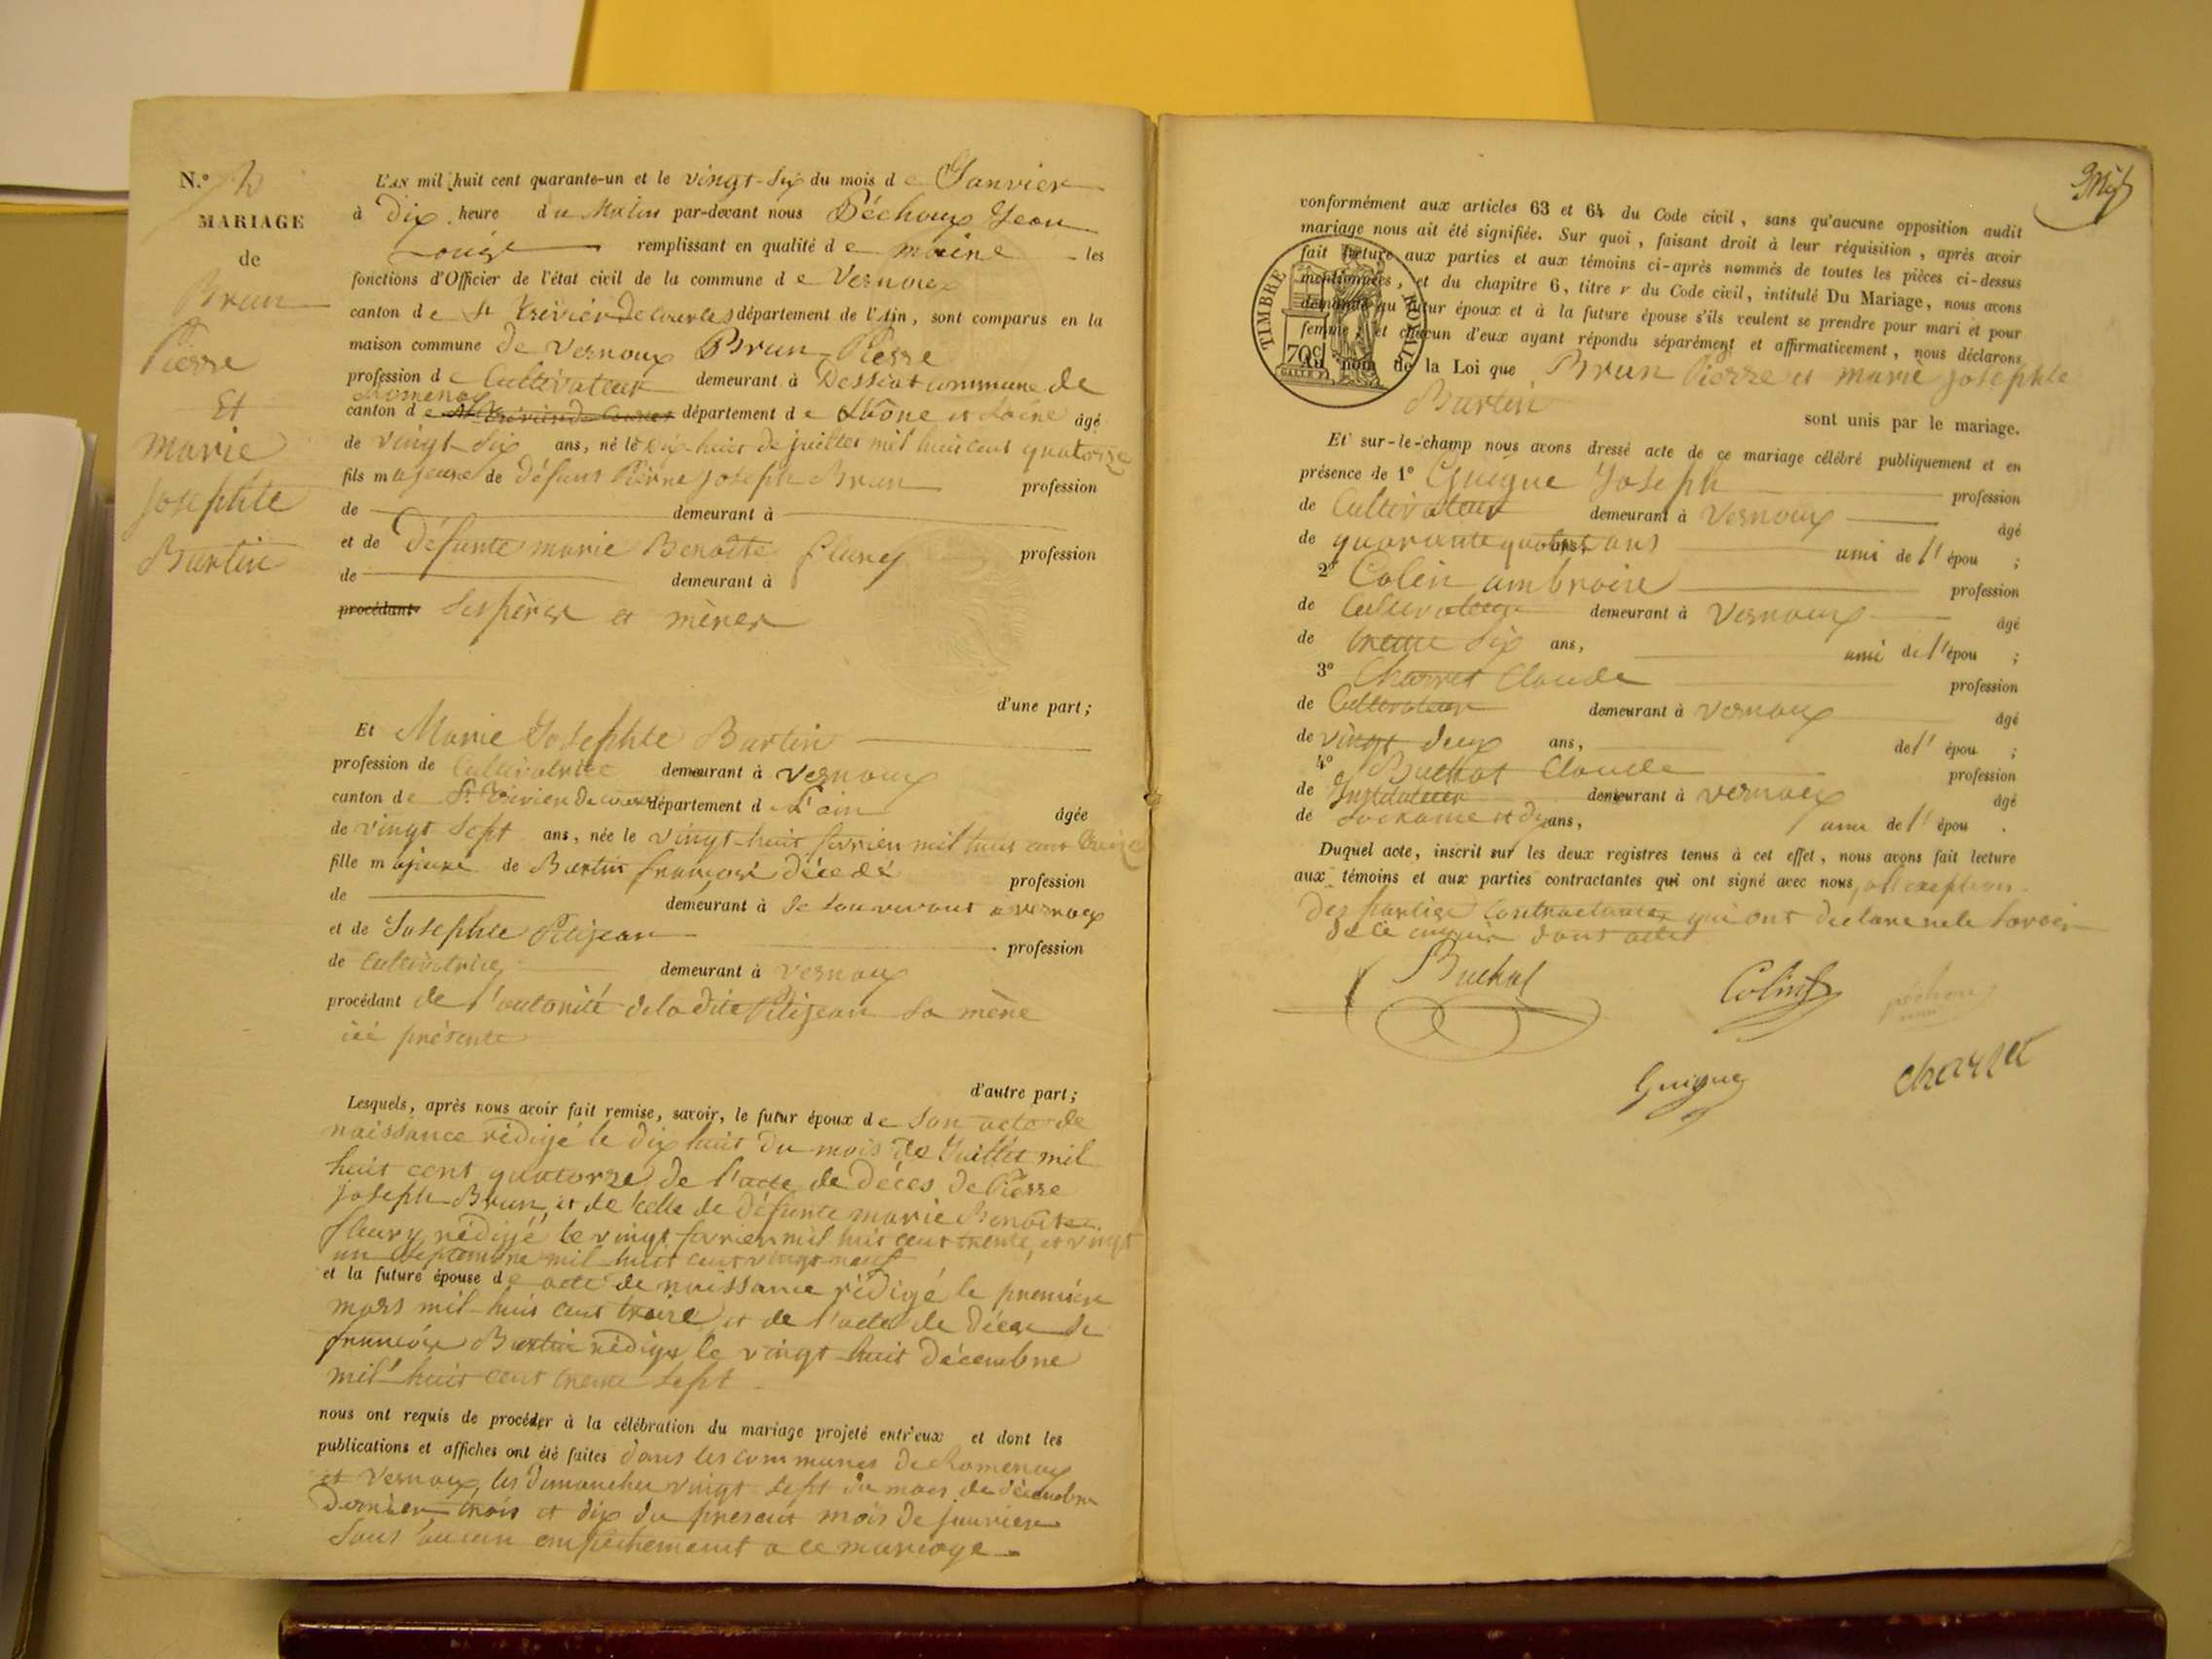 N.º
MARIAGE
de
Brun
Pierre
Et
marie
josephte
Burtin
L'AN mil huit cent quarante-un et le vingt-six du mois de Janvier
à Dix heure du Matin par-devant nous Péchoux Jean
Louis remplissant en qualité de maire les
fonctions d'Officier de l'état civil de la commune de Vernoux
canton de St Trévier De Courtes département de l'Ain, sont comparus en la
maison commune de Vernoux Brun Pierre
profession de Cultivateur demeurant à commune de
Romenay
canton de département de Saône âgé
de vingt-six ans, né le Dix-huit de juillet mil huit cent quatorze
fils majeure de Défunt Pierre Joseph Brun profession
de demeurant à
et de Défunte marie Benoîte fleury profession
de demeurant à
procédant Ses pères et mères
d'une part;
Et Marie Josephte Burtin
profession de Cultivatrice demeurant à Vernoux
canton de St Trivier De Courtes département de L'ain âgée
de vingt sept ans, née le vingt-huit février mil huit cent treize
fille majeure de Burtin françois décédé profession
de demeurant à vernoux
et de Josephte Petijean profession
de Cultivatrice demeurant à vernoux
procédant de l'autorité de la dite Petijean sa mère
ici présente
d'autre part;
Lesquels, après nous avoir fait remise, savoir, le futur époux de Son acte de
naissance rédigé le dix huit du mois de Juillet mil
huit cent quatorze, de l'acte de Décès de Pierre
joseph Brun, et de celle de défunte marie Benoîte
fleury rédigé le vingt février mil huit cent trente, et vingt
un septembre mil huit cent vingt neuf
et la future épouse de acte de naissance rédigé le première
mars mil huit cent treize et de l'acte de décès de
françois Burtin rédigé le vingt-huit Décembre
mil huit cent trente sept
nous ont requis de procéder à la célébration du mariage projeté entr'eux et dont les
publications et affiches ont été faites dans les communes de Romenay
et Vernoux, les dimanches vingt-sept du mois de décembre
dernier trois et dix du présent mois de janvier
Sans aucun empêchement a ce mariage
conformément aux articles 63 et 64 du Code civil, sans qu'aucune opposition audit
mariage nous ait été signifiée. Sur quoi, faisant droit à leur réquisition, après avoir
fait lecture aux parties et aux témoins ci-après nommés de toutes les pièces ci-dessus
mentionnées, et du chapitre 6, titre v du Code civil, intitulé Du Mariage, nous avons
demandé au futur époux et à la future épouse s'ils veulent se prendre pour mari et pour
femme; et chacun d'eux ayant répondu séparément et affirmativement, nous déclarons
au nom de la Loi que Brun Pierre et marie josephte
Burtin
sont unis par le mariage.
TIMBRE ROYAL
70c
Et sur-le-champ nous avons dressé acte de ce mariage célébré publiquement et en
présence de 1º Guigue Joseph profession
de Cultivateur demeurant à Vernoux âgé
de quarante quatre ans ami de l' épou ;
2º Colin ambroise profession
de Cultivateur demeurant à Vernoux âgé
de trente six ans, ami de l'épou ;
3º Charret Claude profession
de Cultivateur demeurant à Vernoux âgé
de vingt deux ans, de l' épou ;
4º Buchat Claude profession
de Instituteur demeurant à vernoux âgé
de soixante et dix ans, ami de l' épou .
Duquel acte, inscrit sur les deux registres tenus à cet effet, nous avons fait lecture
aux témoins et aux parties contractantes qui ont signé avec nous, a l'exeption
des parties Contractantes qui ont déclaré ne le savoir
de ce enquis
Buchat
Colin
péchoux
Guigue
charret